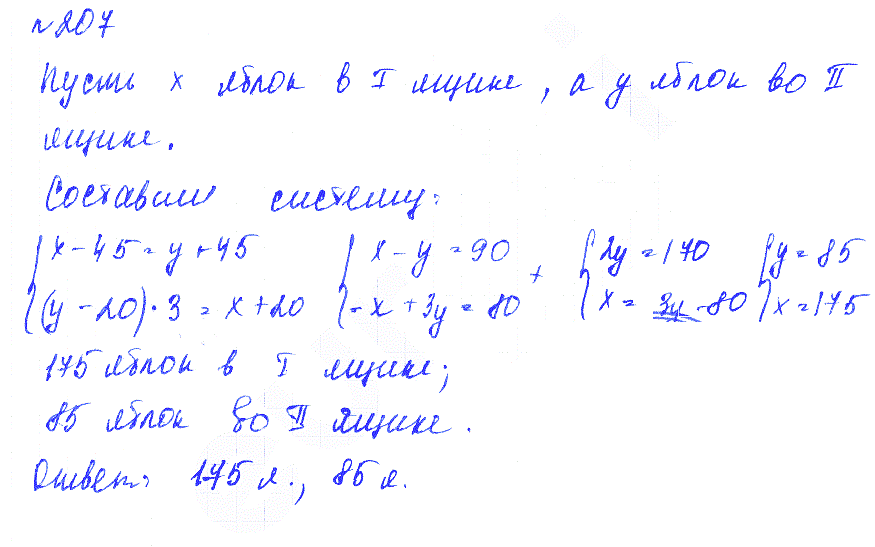 №207
Пусть x яблок в I ящике, а y яблок во II
ящике.
Составим систему:
{x-45=y+45 {x-y=90 + {2y=170 {y=85
{(y-20)·3=x+20 {-x+3y=80 {x=3y-80 {x=175
175 яблок в I ящике;
85 яблок во II ящике.
Ответ: 175 я., 85 я.